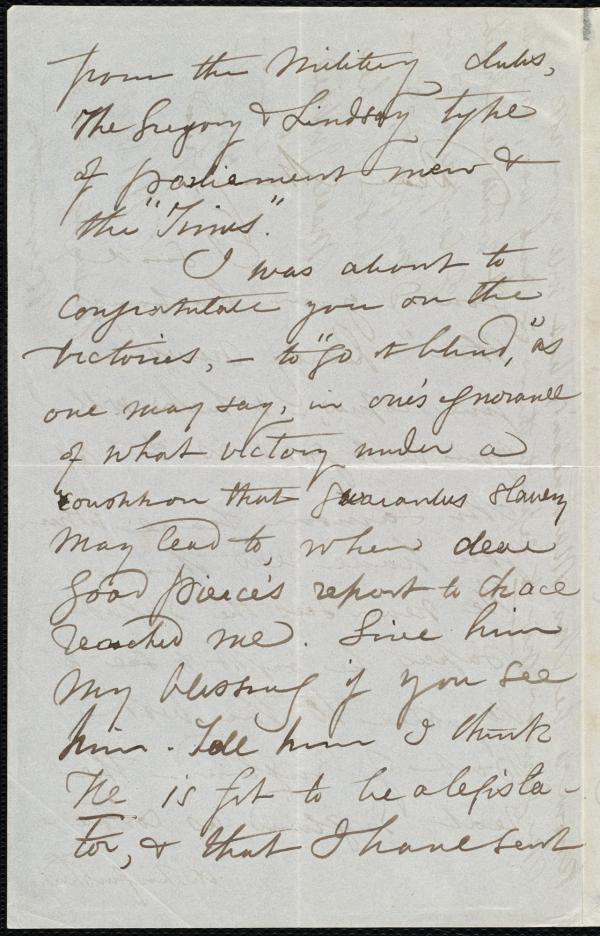 from the Military clubs,
The Gregory & Lindsay type
of parliament men &
the "Times".
I was about to
congratulate you on the
victories, — to "go it blind," as
one may say, in one's ignorance
of what victory under a
constitution that guarantees slavery
may lead to, when dear
good Pierce's report to Chace
reached me. Give him
my blessing if you see
him. Tell him I think
he is fit to be a legisla-
tor, & that I have sent